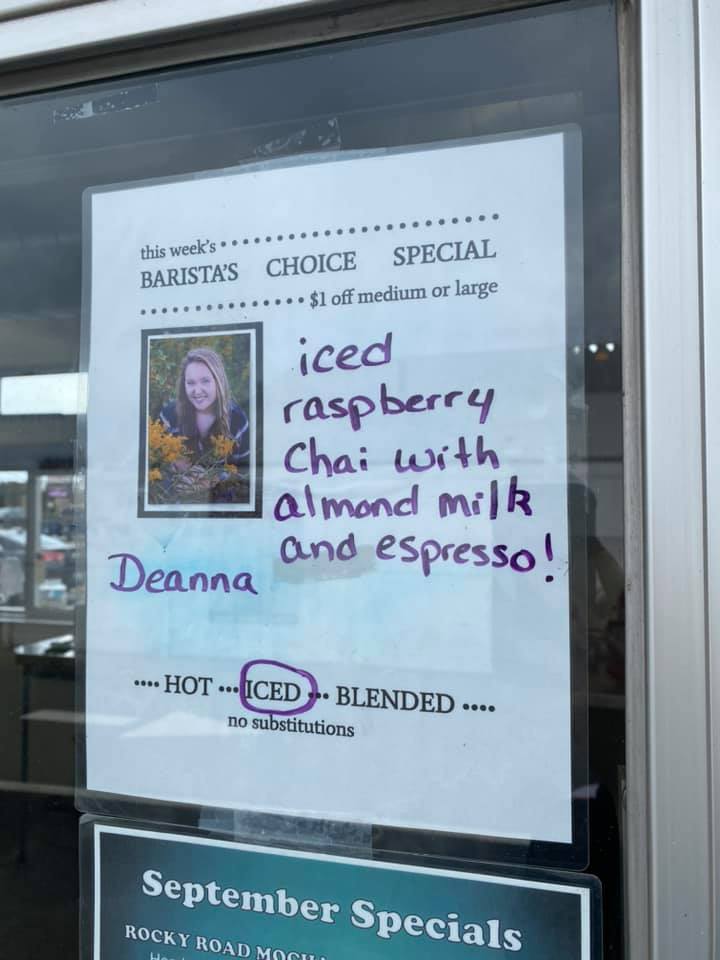 this week's
BARISTA'S CHOICE SPECIAL
$1 off medium or large
iced
raspberry
Chai with
almond milk
and espresso!
Deanna
HOT ICED BLENDED
no substitutions
September Specials
ROCKY ROAD